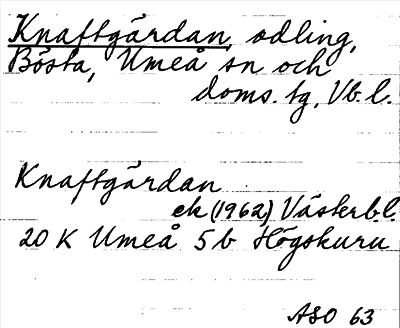 Knaftgärdan, odling,
Bösta, Umeå sn och
doms. tg, Vb. l.
Knaftgärdan
ek (1962) Västerbl.
20 K Umeå 5b Högskuru
ASO 63